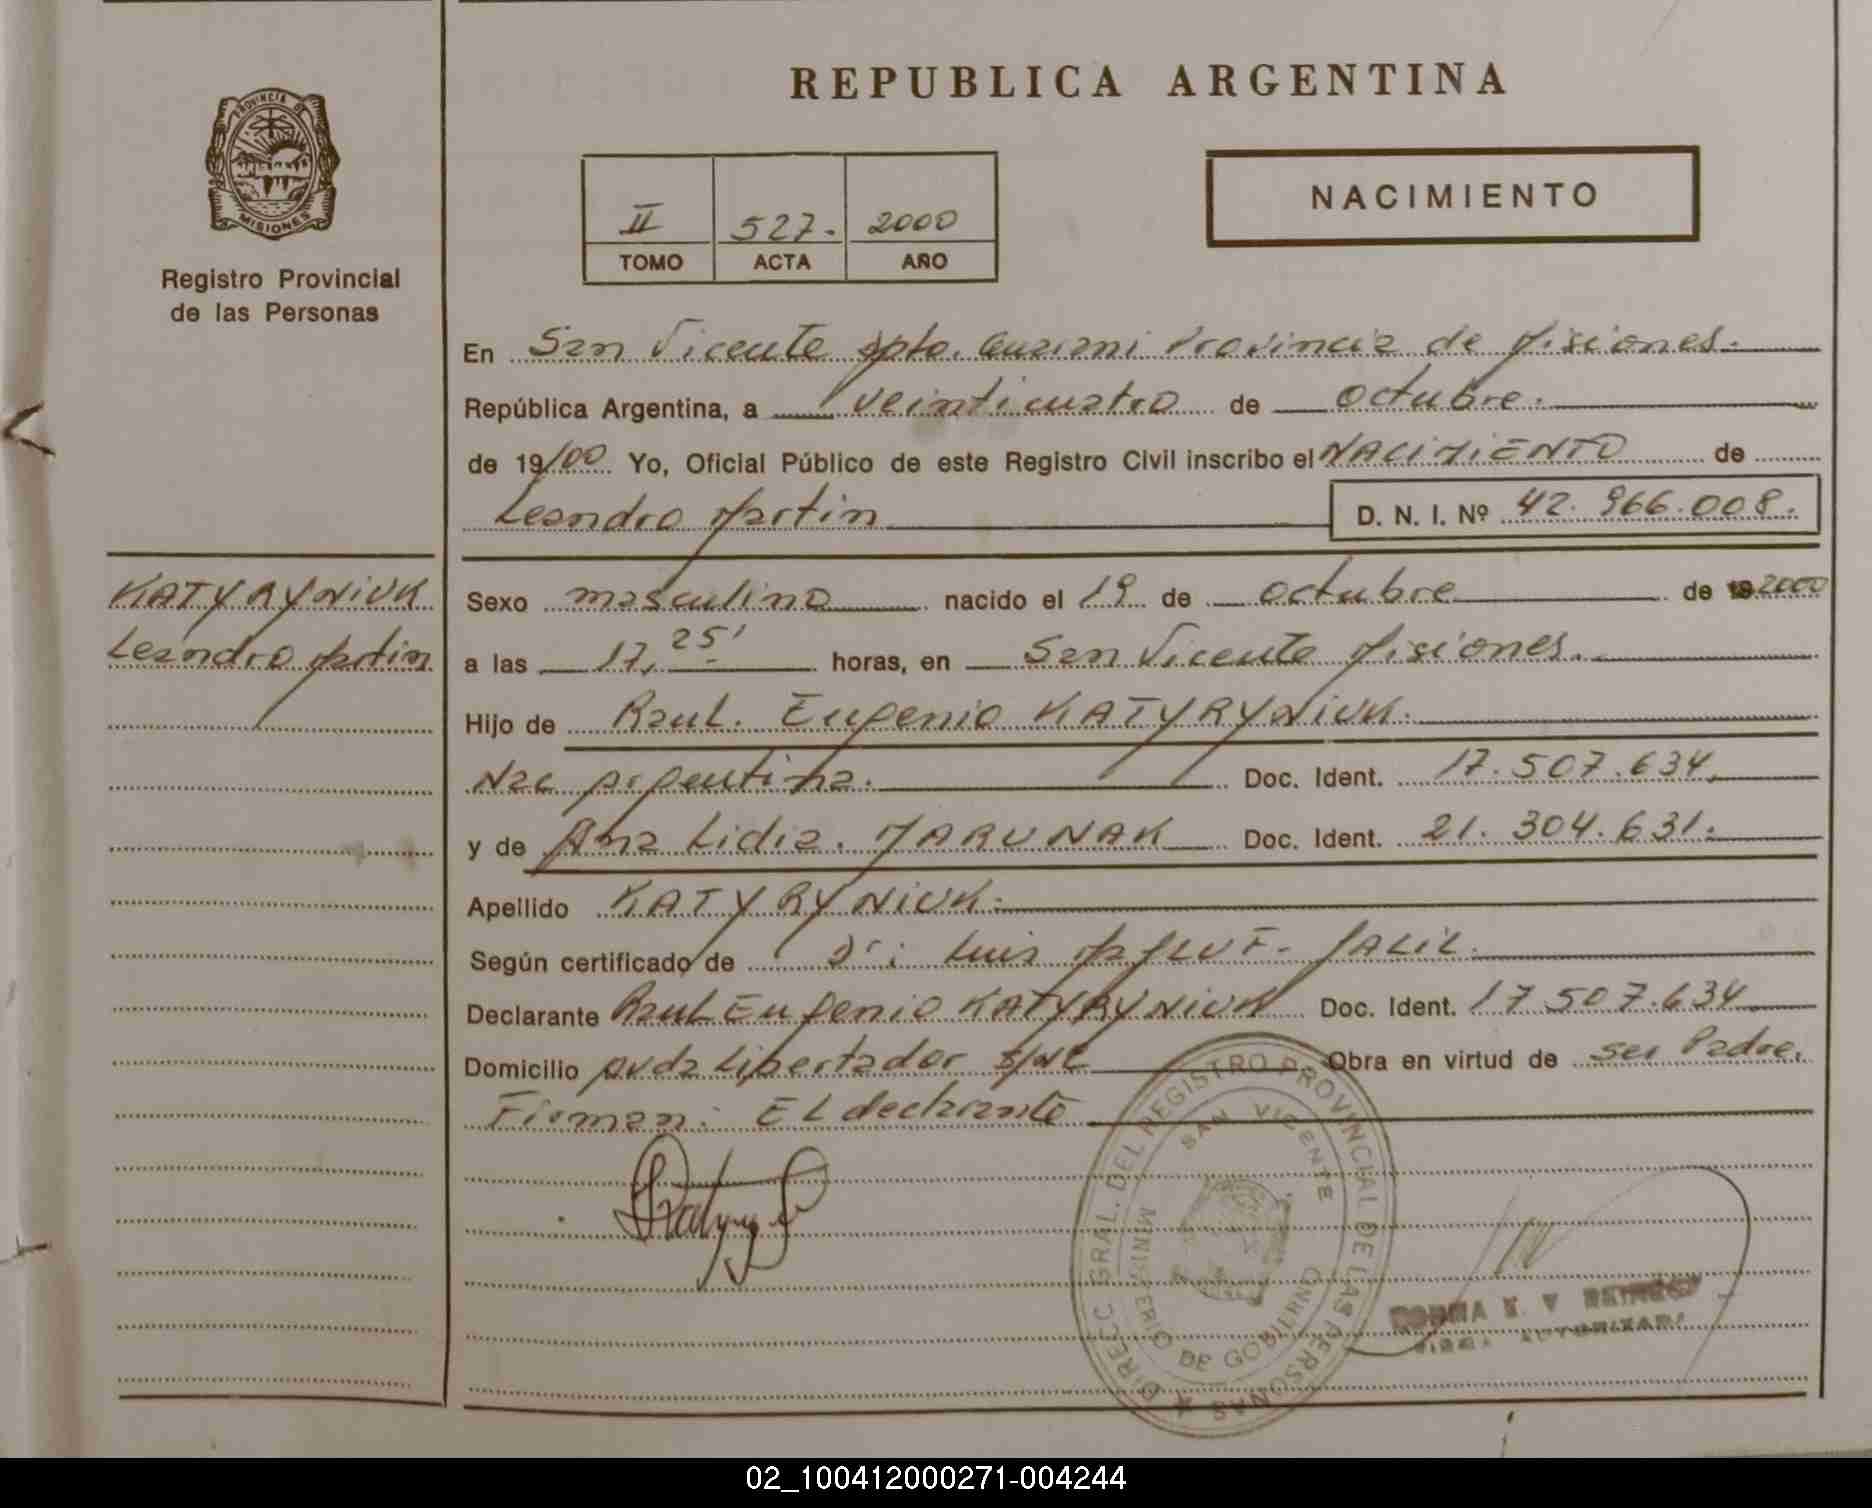 REPUBLICA ARGENTINA
PROVINCIA DE
MISIONES
Registro Provincial
de las Personas
II 527. 2000
TOMO ACTA AÑO
NACIMIENTO
En San Vicente Dpto. Guarani Provincia de Misiones.
República Argentina, a veinticuatro de octubre.
de 19/00 Yo, Oficial Público de este Registro Civil inscribo el NACIMIENTO de
Leandro Martin D. N. I. Nº 42.966.008.
KATYRYNIUK
Leandro Martin
Sexo masculino nacido el 19 de octubre de 2000
a las 17,25' horas, en San Vicente Misiones.
Hijo de Raul. Eugenio KATYRYNIUK.
Nac Argentina. Doc. Ident. 17.507.634.
y de Ana Lidia. MARUNAK Doc. Ident. 21.304.631.
Apellido KATYRYNIUK.
Según certificado de Dr: Luis JALIL.
Declarante Raul Eugenio KATYRYNIUK Doc. Ident. 17507.634
Domicilio Avda Libertador s/nº Obra en virtud de ser Padre.
Firman: El declarante
DIRECC. GRAL. DEL REGISTRO PROVINCIAL DE LAS PERSONAS
SAN VICENTE
MINISTERIO DE GOBIERNO
NORMA
AUTORIZADA
02_100412000271-004244